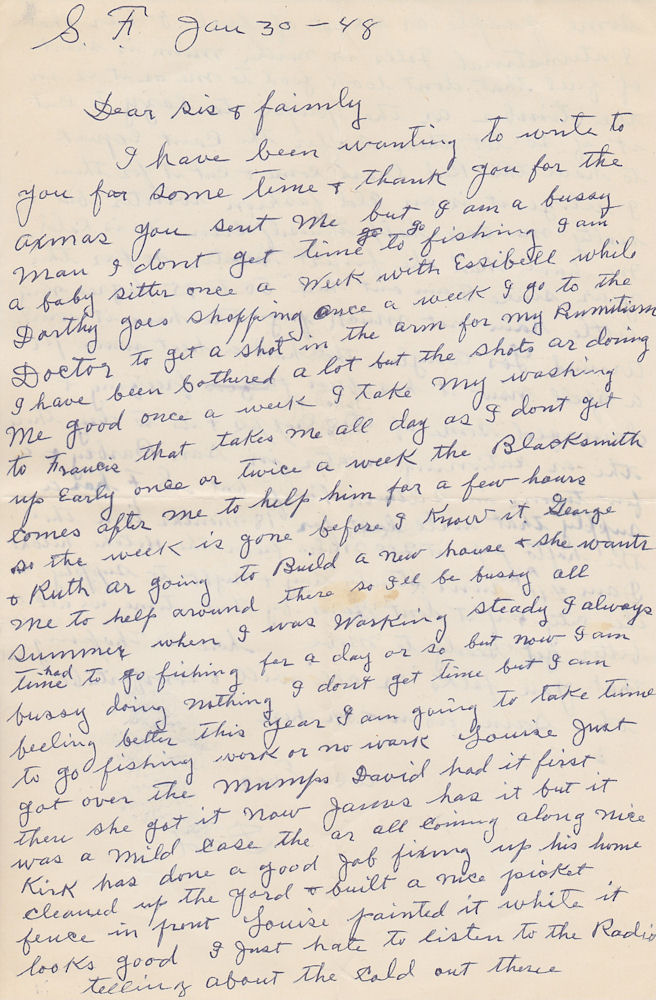 S. F. Jan 30 - 48
Dear sis & faimly
I have been wanting to write to
you for some time & thank you for the
axmas you sent me but I am a bussy
man I dont get time to go fishing I am
a baby sitter once a week with Essibell while
Dorthy goes shopping once a week I go to the
Doctor to get a shot in the arm for my Rumitism
I have been bothured a lot but the shots ar doing
me good once a week I take my washing
to Francis that takes me all day as I dont get
up Early once or twice a week the Blacksmith
comes after me to help him for a few hours
so the week is gone before I know it George
& Ruth ar going to Build a new house & she wants
me to help around there so Ill be bussy all
summer when I was working steady I always
had time to go fishing for a day or so but now I am
bussy doing nothing I dont get time but I am
feeling better this year I am going to take time
to go fishing work or no work Louise Just
got over the mumps David had it first
then she got it now James has it but it
was a mild case the ar all coming along nice
Kirk has done a good Job fixing up his home
cleaned up the yard & built a nice picket
fence in front Louise painted it white it
looks good I Just hate to listen to the Radio
telling about the cold out there